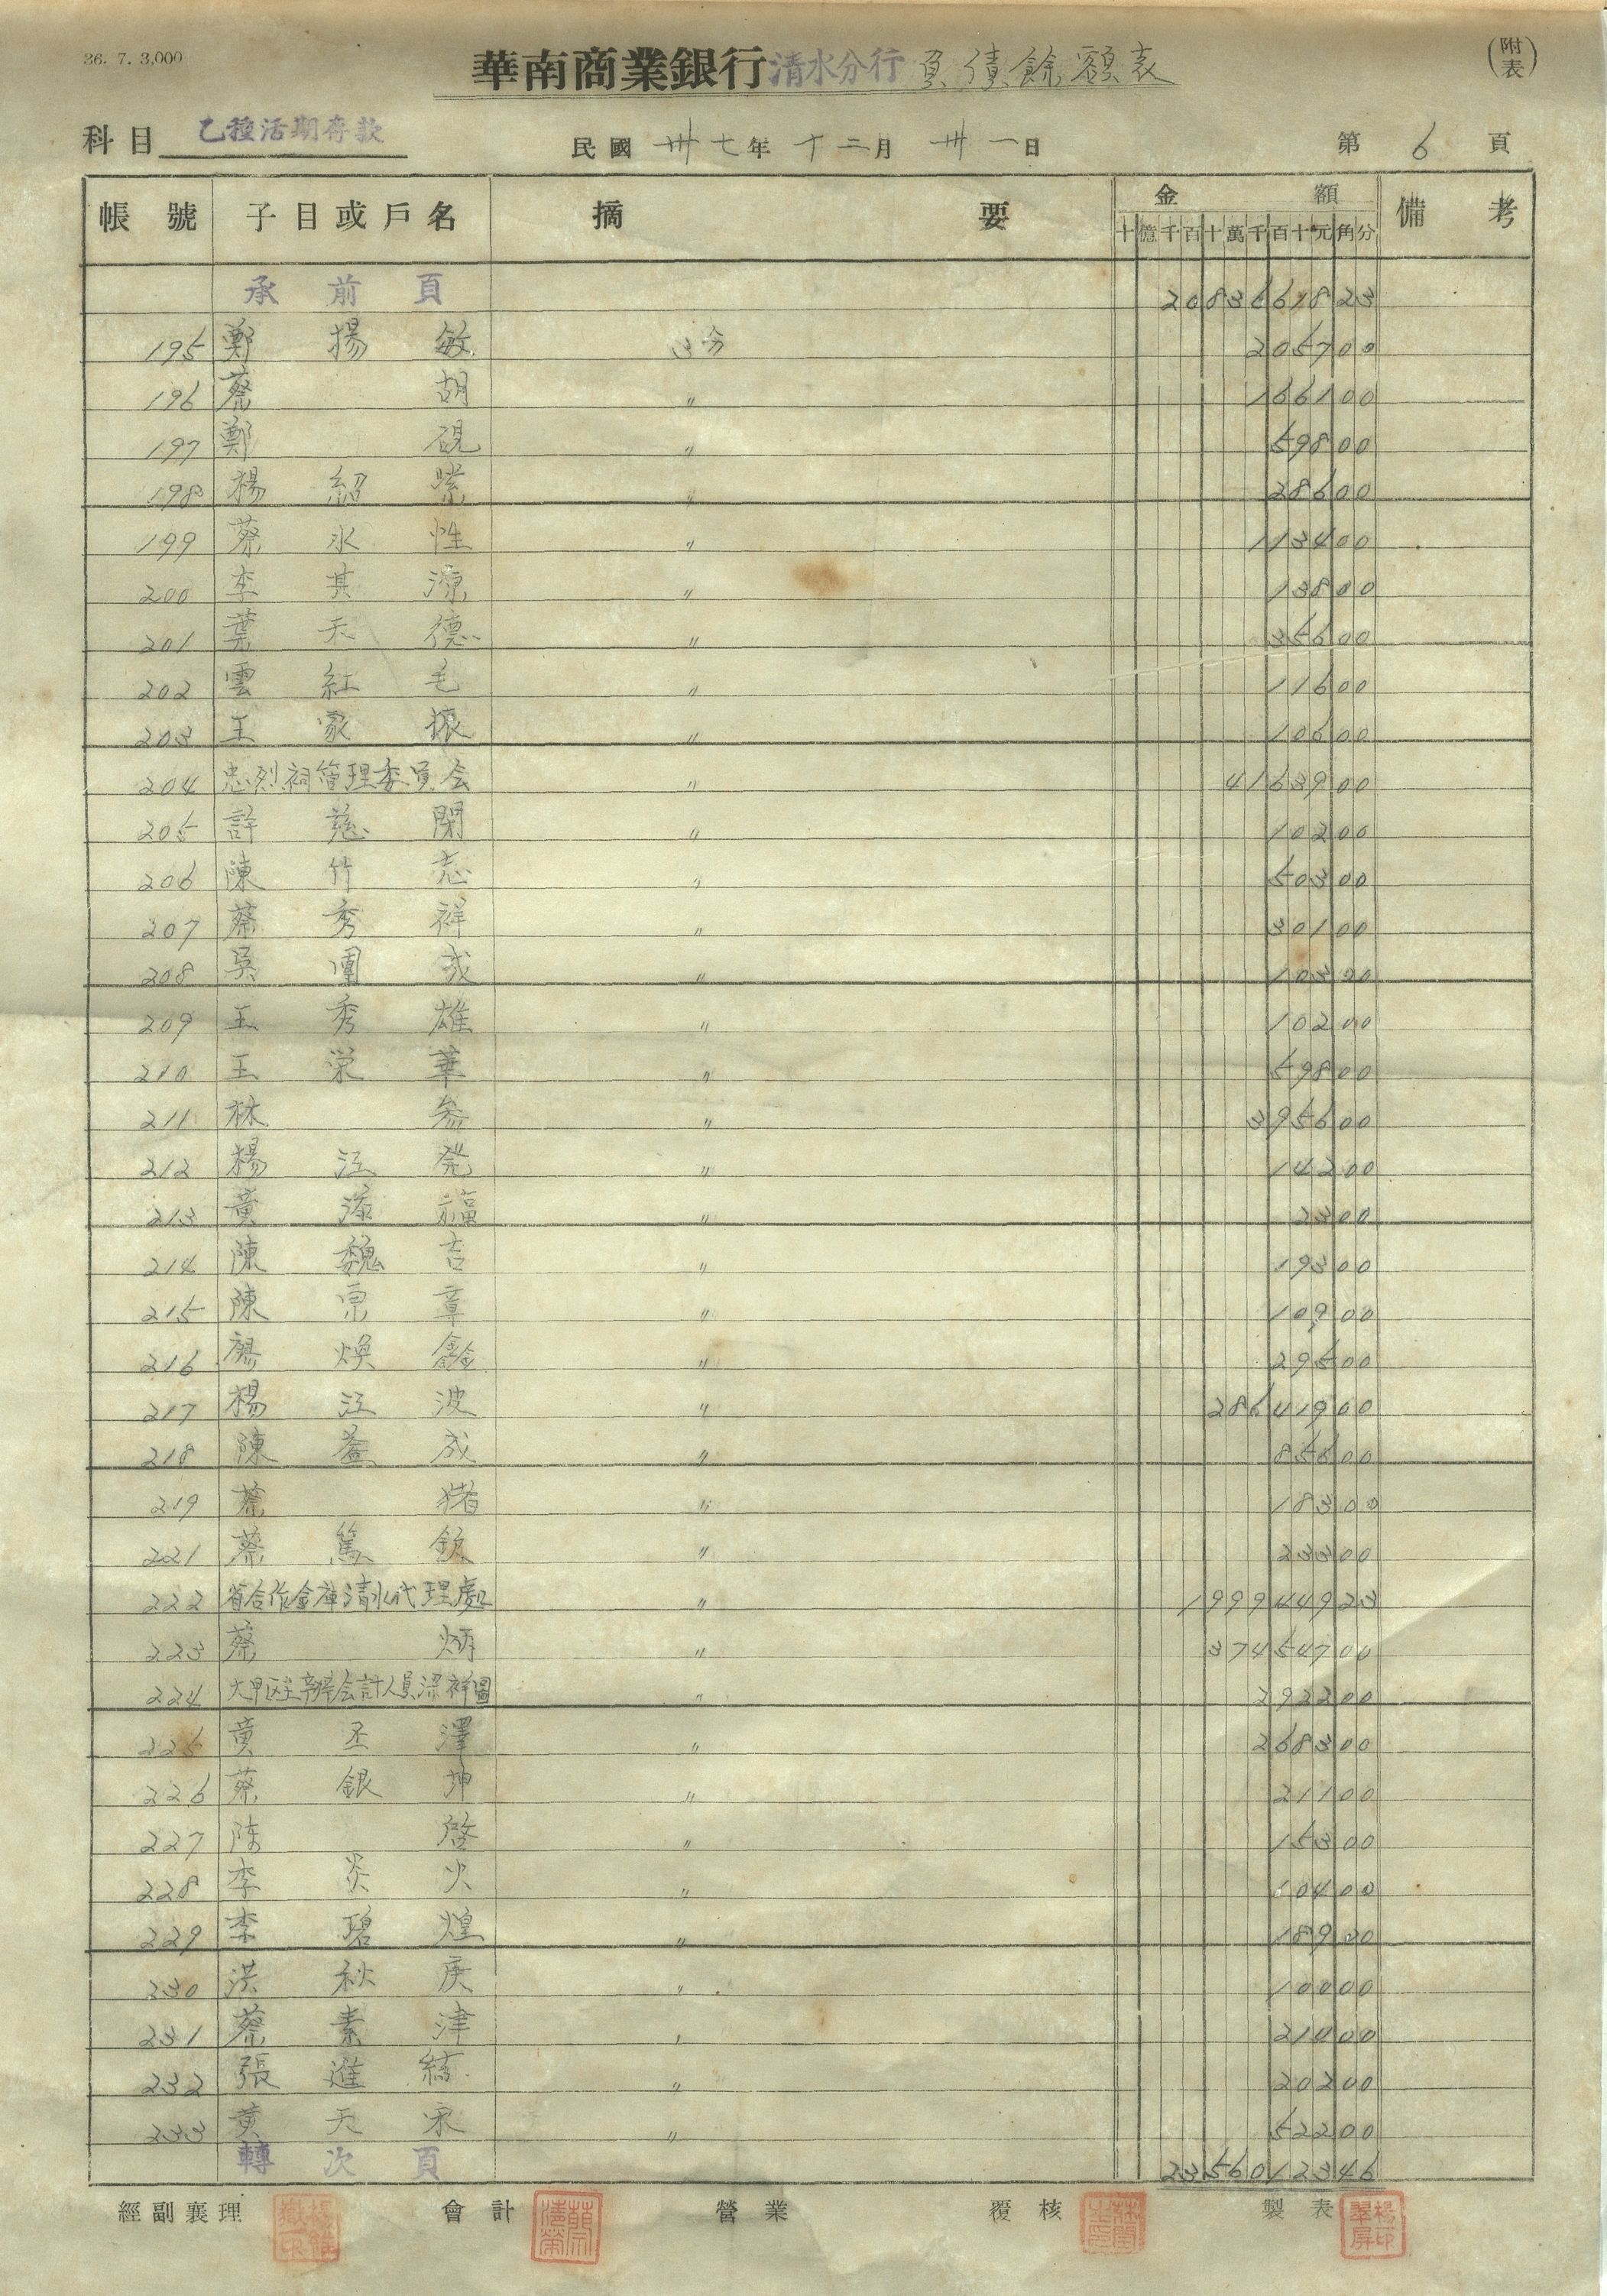 36. 7. 3,000
華南商業銀行清水分行負債餘額表
(附表)
科目 乙種活期存款 民國 卅七年 十二月 卅一日 第 6 頁
帳號 子目或戶名 摘要 金額 備考
十億千百十萬千百十元角分
承前頁 2083661823
195 鄭揚敏 3分 205700
196 蔡胡 〃 166100
197 鄭硯 〃 59800
198 楊紹 〃 28600
199 蔡水性 〃 113400
200 李其源 〃 13800
201 葉天德 〃 35600
202 雲紅毛 〃 11600
203 王家振 〃 10600
204 忠烈祠管理委員会 〃 4163900
205 許慈閑 〃 10200
206 陳竹志 〃 50300
207 蔡秀祥 〃 30100
208 吳團成 〃 10300
209 王秀雄 〃 10200
210 王栄華 〃 59800
211 林参 〃 395600
212 楊江発 〃 14200
213 黃添福 〃 2300
214 陳魏吉 〃 19300
215 陳宗章 〃 10900
216 廖煥鑫 〃 29500
217 楊江波 〃 28641900
218 陳益成 〃 85600
219 蔡猪 〃 18300
221 蔡篤欽 〃 23300
222 省合作金庫清水代理處 〃 199944923
223 蔡炳 〃 37454700
224 大甲区主辦会計人員梁祥圖 〃 292200
225 黃丕澤 〃 268300
226 蔡銀坤 〃 21100
227 陈啓 〃 15300
228 李炎火 〃 10400
229 李碧煌 〃 18900
230 洪秋庚 〃 10000
231 蔡素津 〃 21400
232 張進 〃 20200
233 黃天來 〃 52200
轉次頁 2356012346
經副襄理 會計 營業 覆核 製表
楊翠屏印